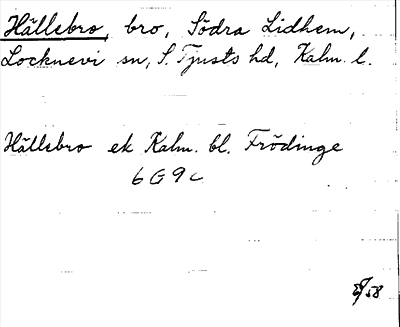 Hällsbro, bro, Södra Lidhem,
Locknevi sn, S. Tjusts hd, Kalm. l.
Hällsbro ek Kalm. bl. Frödinge
6 G 9 c
58